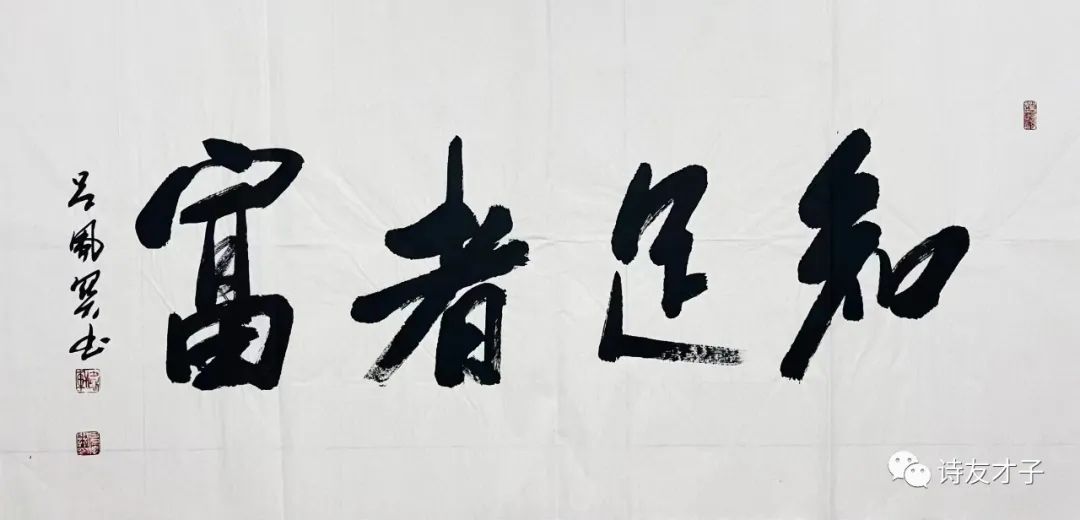 知足者富
吕凤 书
诗友才子